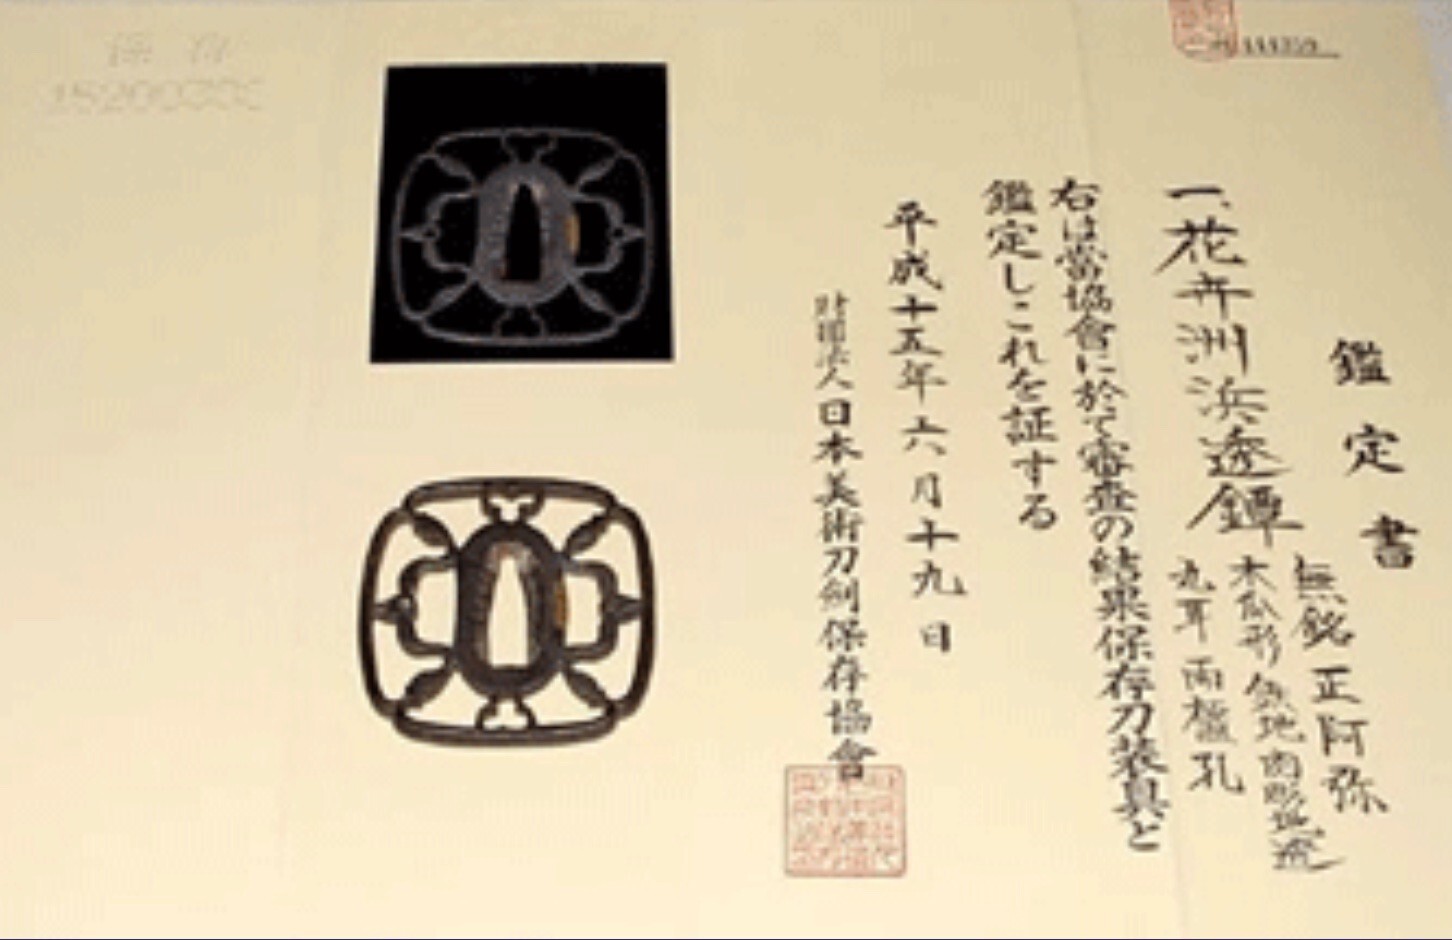 鑑定書
一、花卉洲浜透鐔
無銘 正阿弥
木瓜形 鉄地 肉彫地透
丸耳 両櫃孔
右は當協會に於て審査の結果保存刀装具と
鑑定しこれを証する
平成十五年六月十九日
財団法人日本美術刀剣保存協會